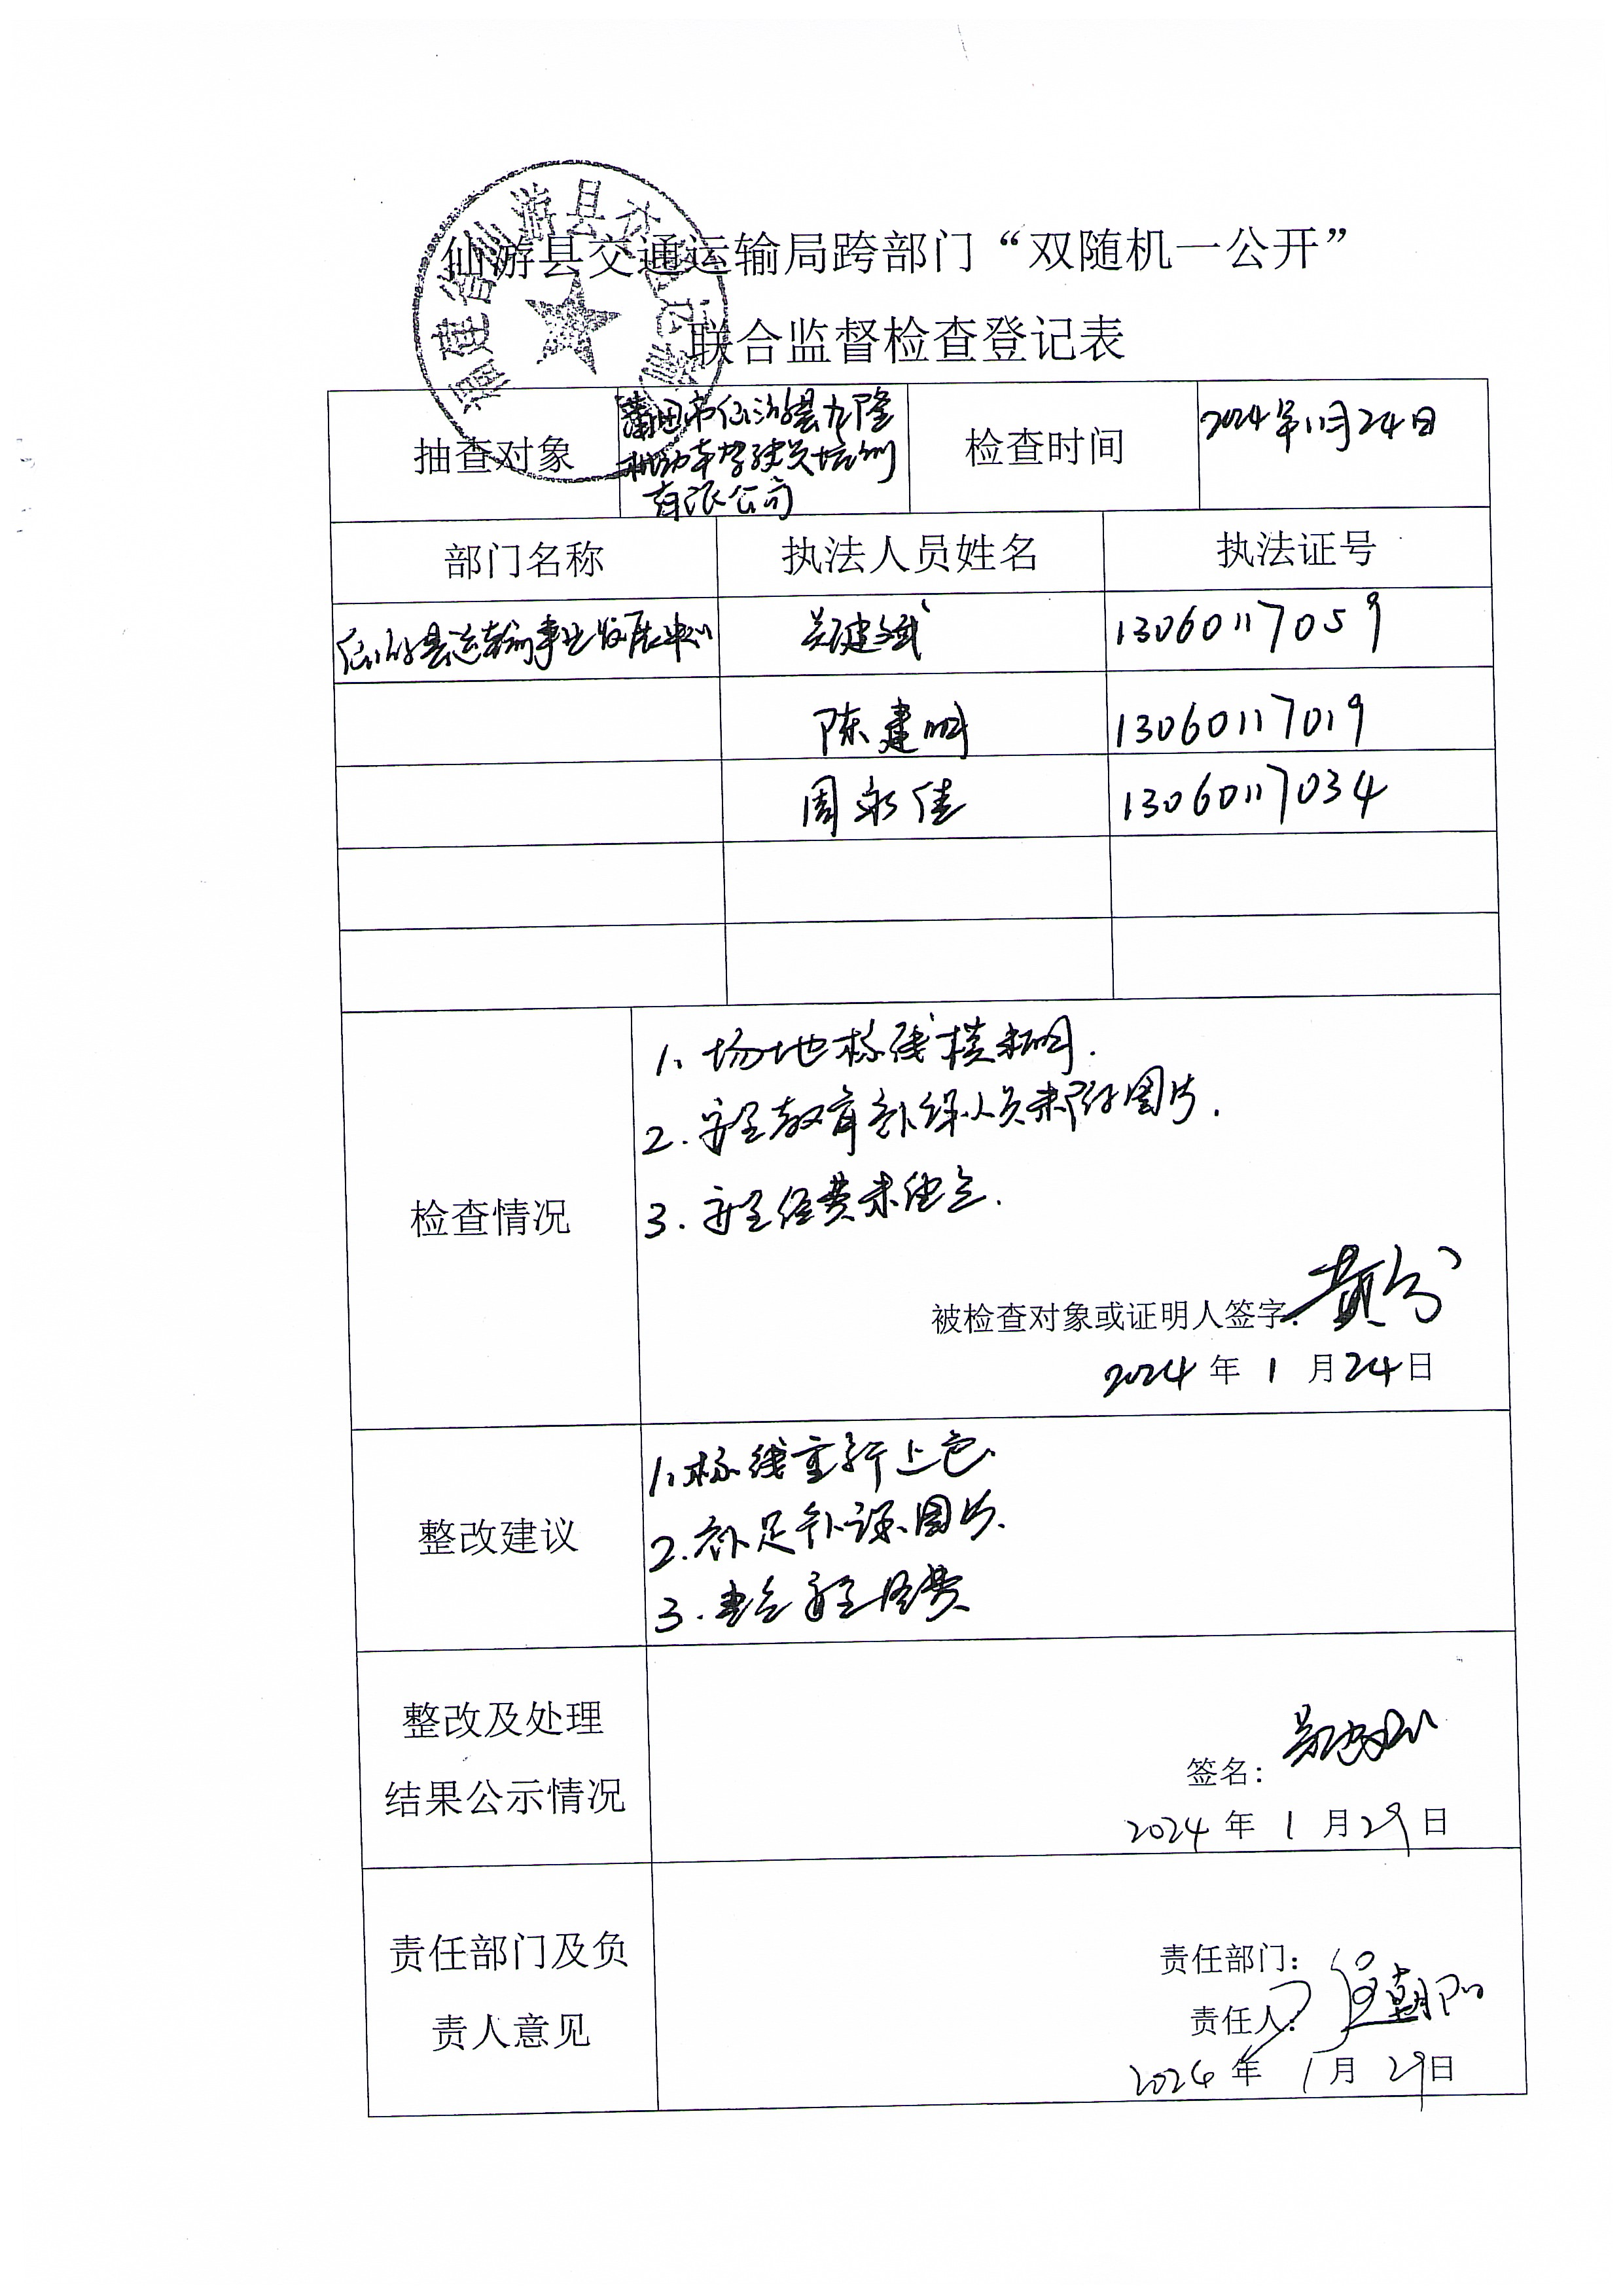 仙游县交通运输局跨部门“双随机一公开”
联合监督检查登记表
福建省仙游县交
抽查对象
莆田市仙游县九隆
机动车驾驶员培训
有限公司
检查时间
2024年1月24日
部门名称 执法人员姓名 执法证号
仙游县运输事业发展中心 吴建斌 13060117059
陈建明 13060117019
周永佳 13060117034
检查情况
1、场地标线模糊.
2.安全教育补课人员未附图片.
3.安全经费未建立.
被检查对象或证明人签字:
2024年1月24日
整改建议
1、标线重新上色.
2.补足补课图片.
3.建立安全经费
整改及处理
结果公示情况
签名:
2024年1月29日
责任部门及负
责人意见
责任部门:
责任人: 朝阳
2024年1月29日